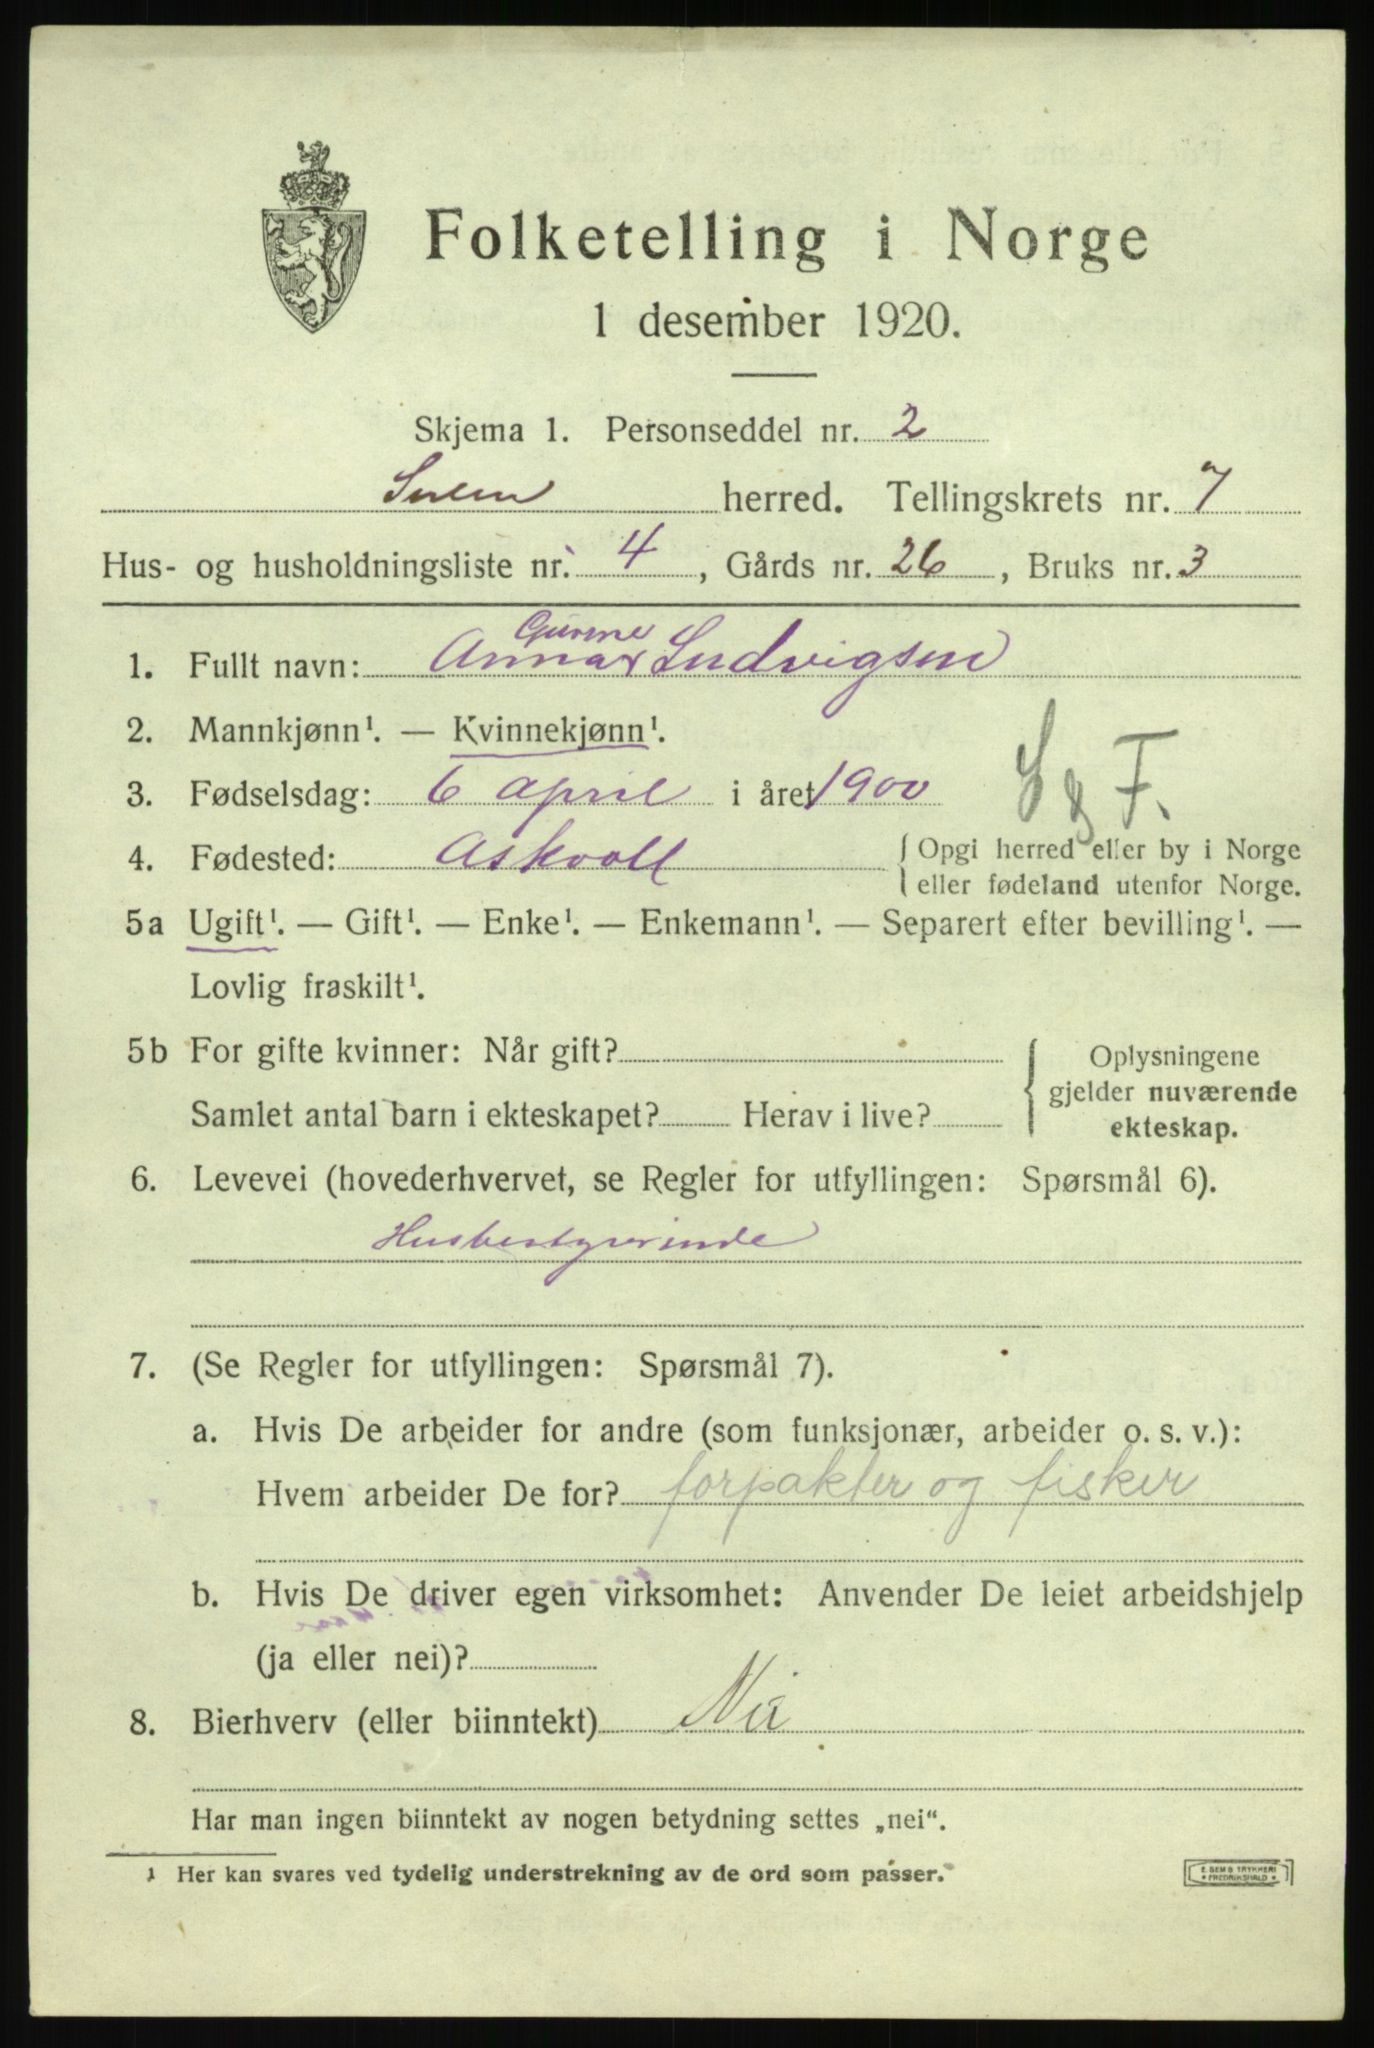 Folketelling i Norge
1 desember 1920.
Skjema 1. Personseddel nr. 2
herred. Tellingskrets nr. 7
Hus- og husholdningsliste nr. 4, Gårds nr. 26, Bruks nr. 3
1. Fullt navn: Anna Ludvigsen
2. Mannkjønn¹. — Kvinnekjønn¹.
3. Fødselsdag: 6 april i året 1900
S g F.
4. Fødested: Askvoll { Opgi herred eller by i Norge
eller fødeland utenfor Norge.
5a Ugift¹. — Gift¹. — Enke¹. — Enkemann¹. — Separert efter bevilling¹. —
Lovlig fraskilt¹.
5b For gifte kvinner: Når gift? { Oplysningene
gjelder nuværende
Samlet antal barn i ekteskapet? Herav i live?
ekteskap.
6. Levevei (hovederhvervet, se Regler for utfyllingen: Spørsmål 6).
Husbestyrerinde
7. (Se Regler for utfyllingen: Spørsmål 7).
a. Hvis De arbeider for andre (som funksjonær, arbeider o. s. v.):
Hvem arbeider De for? forpakter og fisker
b. Hvis De driver egen virksomhet: Anvender De leiet arbeidshjelp
(ja eller nei)?
8. Bierhverv (eller biinntekt) Nei
Har man ingen biinntekt av nogen betydning settes „nei“.
¹ Her kan svares ved tydelig understrekning av de ord som passer.
E. SEMS TRYKKERI
FREDRIKSHALD